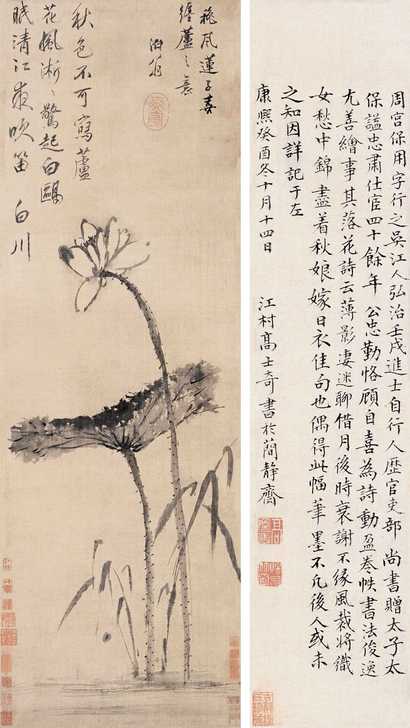 周宮保用字行之吳江人弘治壬戌進士自行人歷官吏部尚書贈太子太
保謚忠肅仕宦四十餘年公忠勤恪顧自喜為詩動盈卷帙書法俊逸
尤善繪事其落花詩云薄影淒迷聊借月後時衰謝不緣風裁將織
女愁中錦盡着秋娘嫁日衣佳句也偶得此幅筆墨不凡後人或未
之知因詳記于左
康熙癸酉冬十月十四日
江村高士奇書於簡靜齋
風蓮子
蘆之意
秋色不可寫蘆
花風淅〻驚起白鷗
眠清江夜吹笛 白川